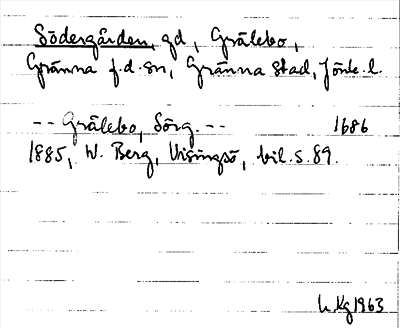 Södergården, gd, Grälebo,
Gränna f.d. sn, Gränna stad, Jönk. l.
-- Grälebo, Sörg. -- 1686
1885, W. Berg, Visingsö, bil. s. 89.
L. Kg 1963